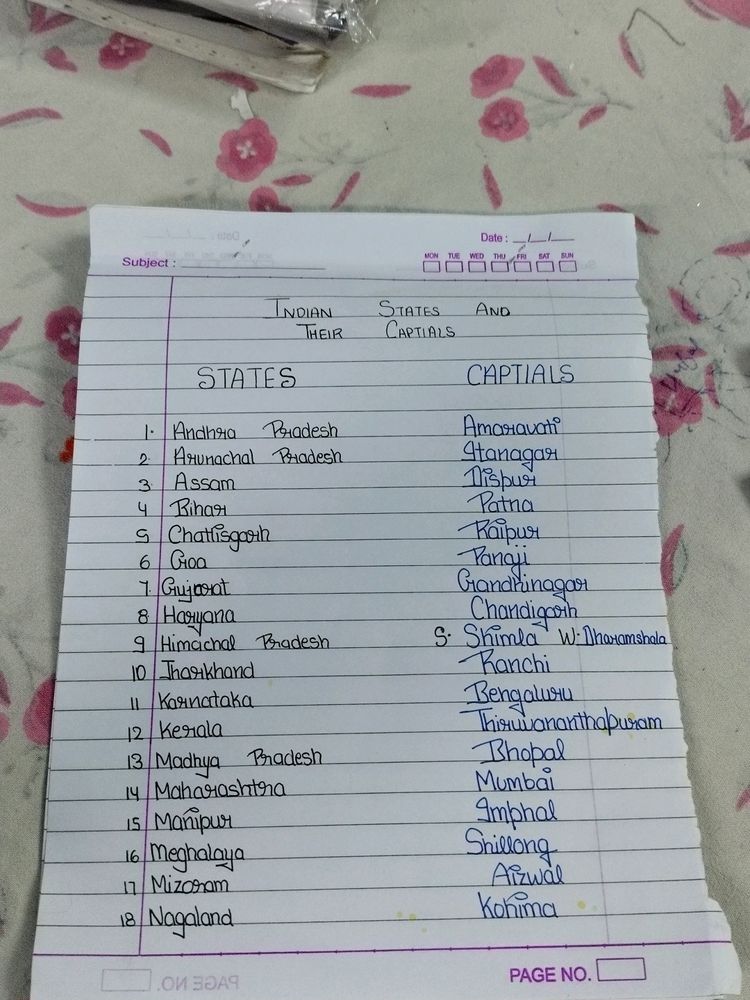 Date : __/__/__
Subject :
MON TUE WED THU FRI SAT SUN
INDIAN STATES AND
THEIR CAPTIALS
STATES CAPTIALS
1. Andhra Pradesh Amaravati
2. Arunachal Pradesh Itanagar
3. Assam Dispur
4 Bihar Patna
5 Chattisgarh Raipur
6 Goa Panaji
7. Gujarat Gandhinagar
8 Haryana Chandigarh
9 Himachal Pradesh S. Shimla W. Dharamshala
10 Jharkhand Ranchi
11 Karnataka Bengaluru
12 Kerala Thiruvananthapuram
13 Madhya Pradesh Bhopal
14 Maharashtra Mumbai
15 Manipur Imphal
16 Meghalaya Shillong
17 Mizoram Aizwal
18 Nagaland Kohima
PAGE NO.